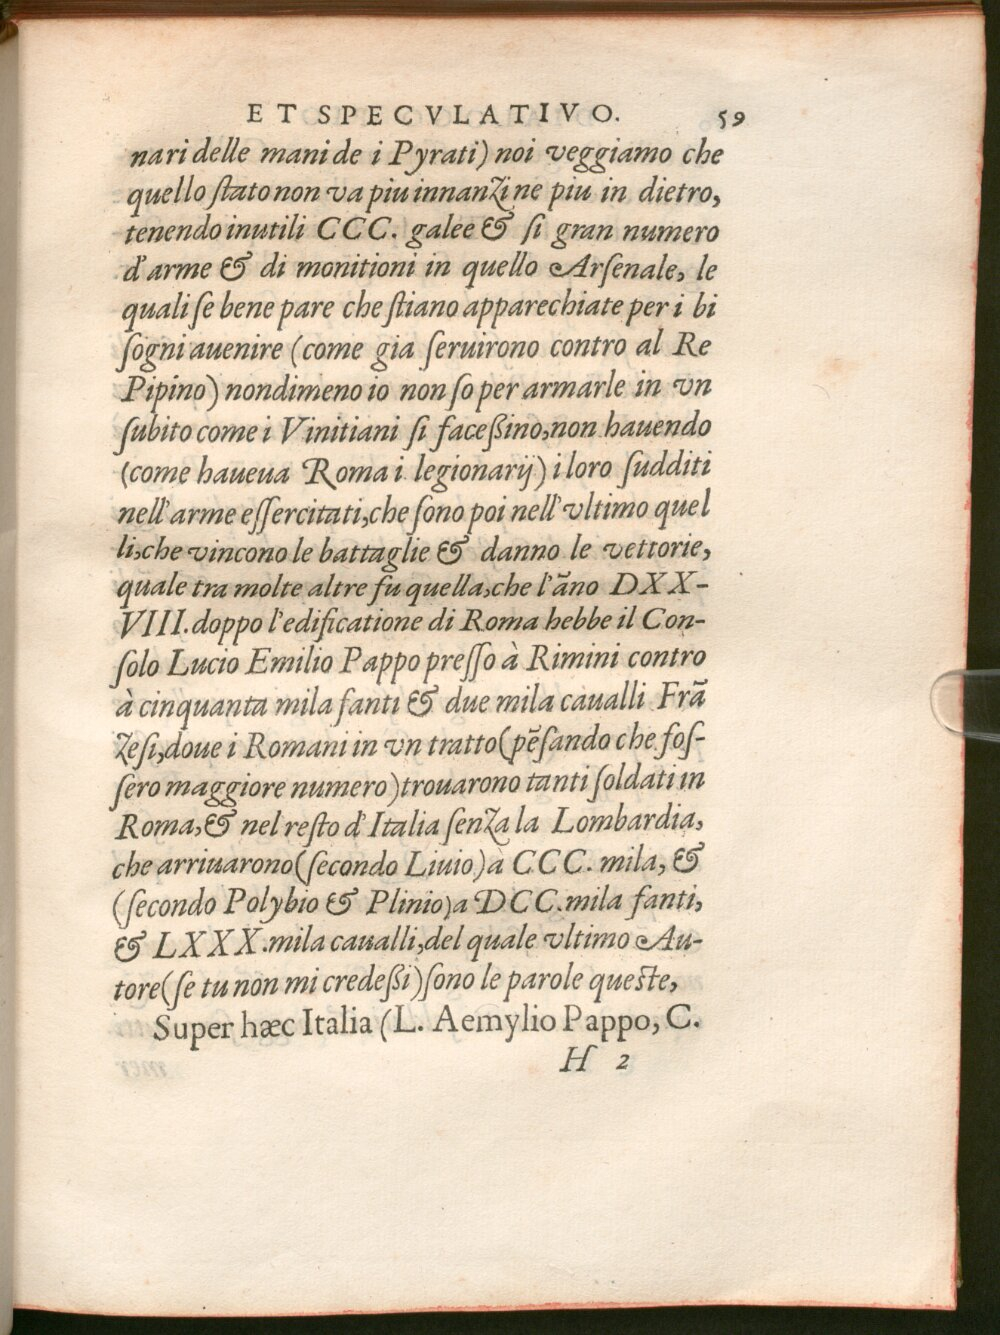 ET SPECVLATIVO. 59
nari delle mani de i Pyrati) noi veggiamo che
quello ſtato non va piu innanzi ne piu in dietro,
tenendo inutili CCC. galee & ſi gran numero
d'arme & di monitioni in quello Arſenale, le
quali ſe bene pare che ſtiano apparechiate per i bi
ſogni auenire (come gia ſeruirono contro al Re
Pipino) nondimeno io non ſo per armarle in vn
ſubito come i Vinitiani ſi faceßino, non hauendo
(come haueua Roma i legionarij) i loro ſudditi
nell'arme eſſercitati, che ſono poi nell'vltimo quel
li, che vincono le battaglie & danno le vettorie,
quale tra molte altre fu quella, che l'āno DXX-
VIII. doppo l'edificatione di Roma hebbe il Con-
ſolo Lucio Emilio Pappo preſſo à Rimini contro
à cinquanta mila fanti & due mila caualli Frā
zeſi, doue i Romani in vn tratto (pēſando che foſ-
ſero maggiore numero) trouarono tanti ſoldati in
Roma, & nel reſto d'Italia ſenza la Lombardia,
che arriuarono (ſecondo Liuio) à CCC. mila, &
(ſecondo Polybio & Plinio) a DCC. mila fanti,
& LXXX. mila caualli, del quale vltimo Au-
tore (ſe tu non mi credeßi) ſono le parole queſte,
Super hæc Italia (L. Aemylio Pappo, C.
H 2